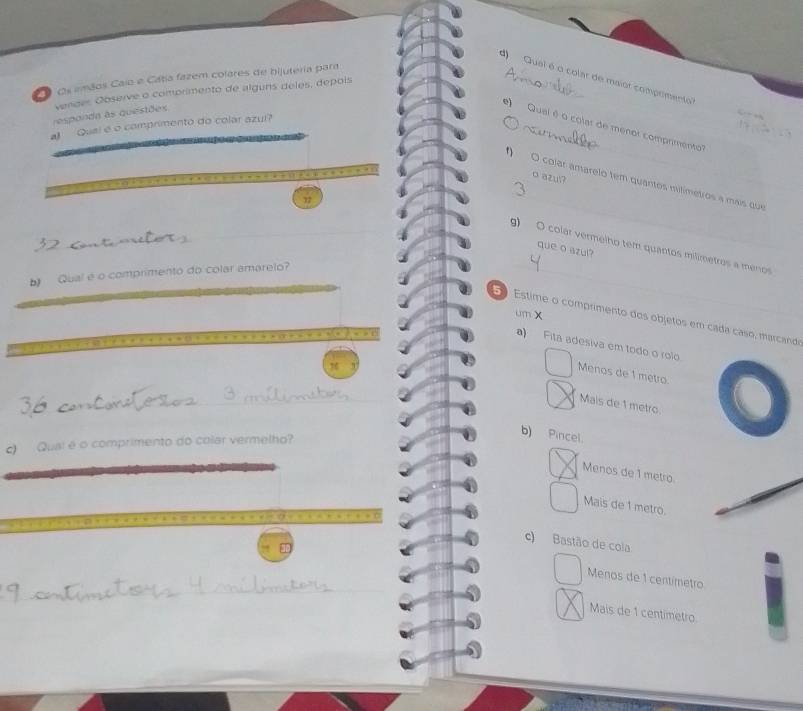 4 Os irmãos Caio e Cátia fazem colares de bijuteria para
vender. Observe o comprimento de alguns deles, depois
responda às questões.
a) Qual é o comprimento do colar azul?
32
32 centimetors
b) Qual é o comprimento do colar amarelo?
36 37
36 3 milimetors
c) Qual é o comprimento do colar vermelho?
30
9 centimetors 4 milimetors
d) Qual é o colar de maior comprimento?
e) Qual é o colar de menor comprimento?
O
f) O colar amarelo tem quantos milímetros a mais que
o azul?
3
g) O colar vermelho tem quantos milímetros a menos
que o azul?
4
5 Estime o comprimento dos objetos em cada caso, marcando
um X
a) Fita adesiva em todo o rolo.
Menos de 1 metro.
X Mais de 1 metro.
b) Pincel.
X Menos de 1 metro.
Mais de 1 metro.
c) Bastão de cola
Menos de 1 centímetro.
X Mais de 1 centímetro.